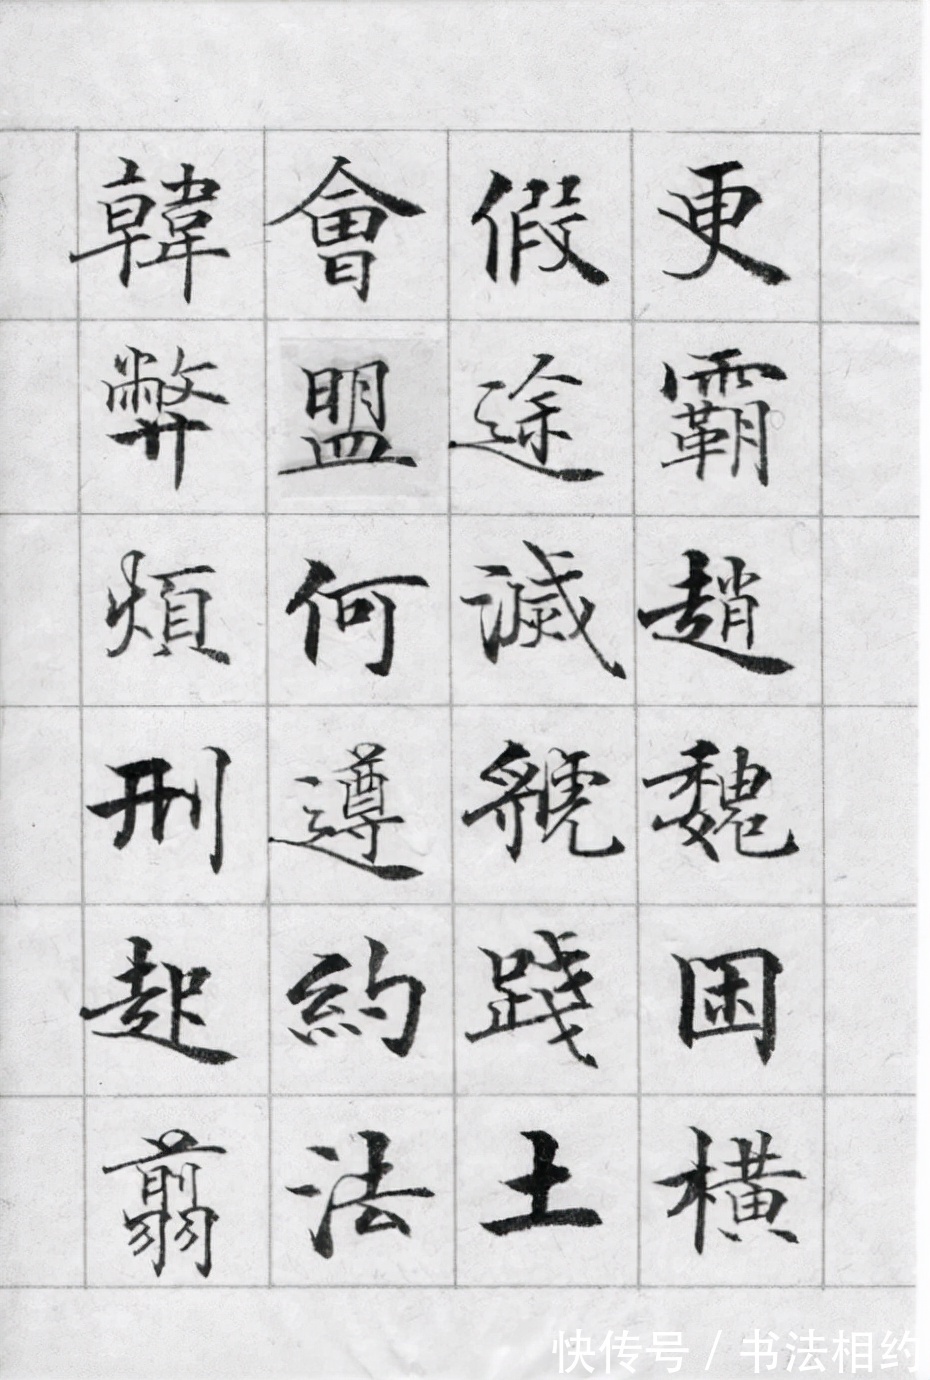 更霸趙魏困橫
假途滅虢踐土
會盟何遵約法
韓弊煩刑起翦
快传号/书法相约